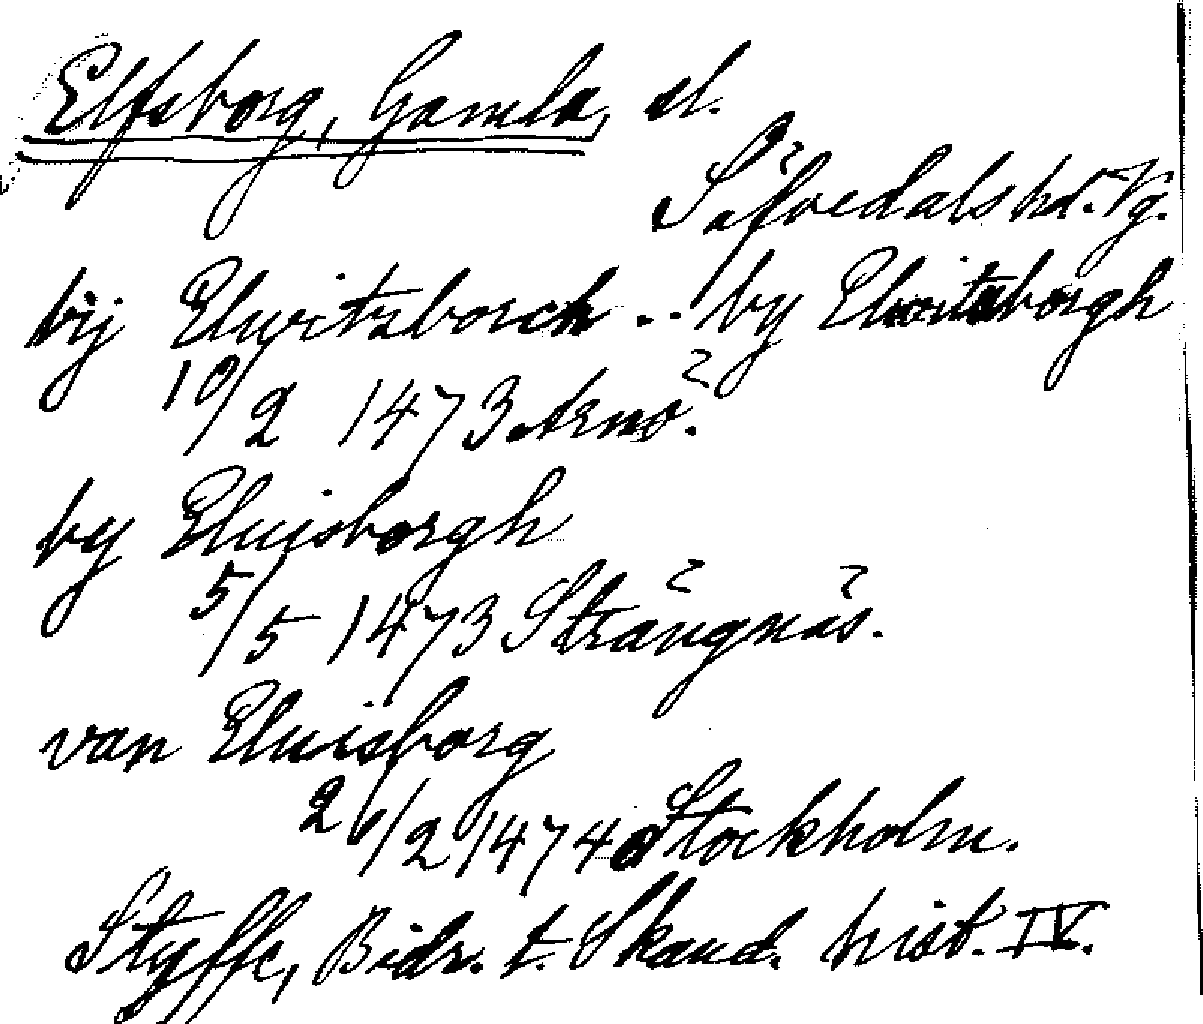 Elfsborg, Gamla, sl.
Säfvedals hd. Vg.
bij Elwitzborch .. by Elwitzborgh
10/2 1473 Arnö.
by Eluisborgh
5/5 1473 Strängnäs.
van Eluisborg
26/2 1474 Stockholm.
Styffe, Bidr. t. Skand. hist. IV.